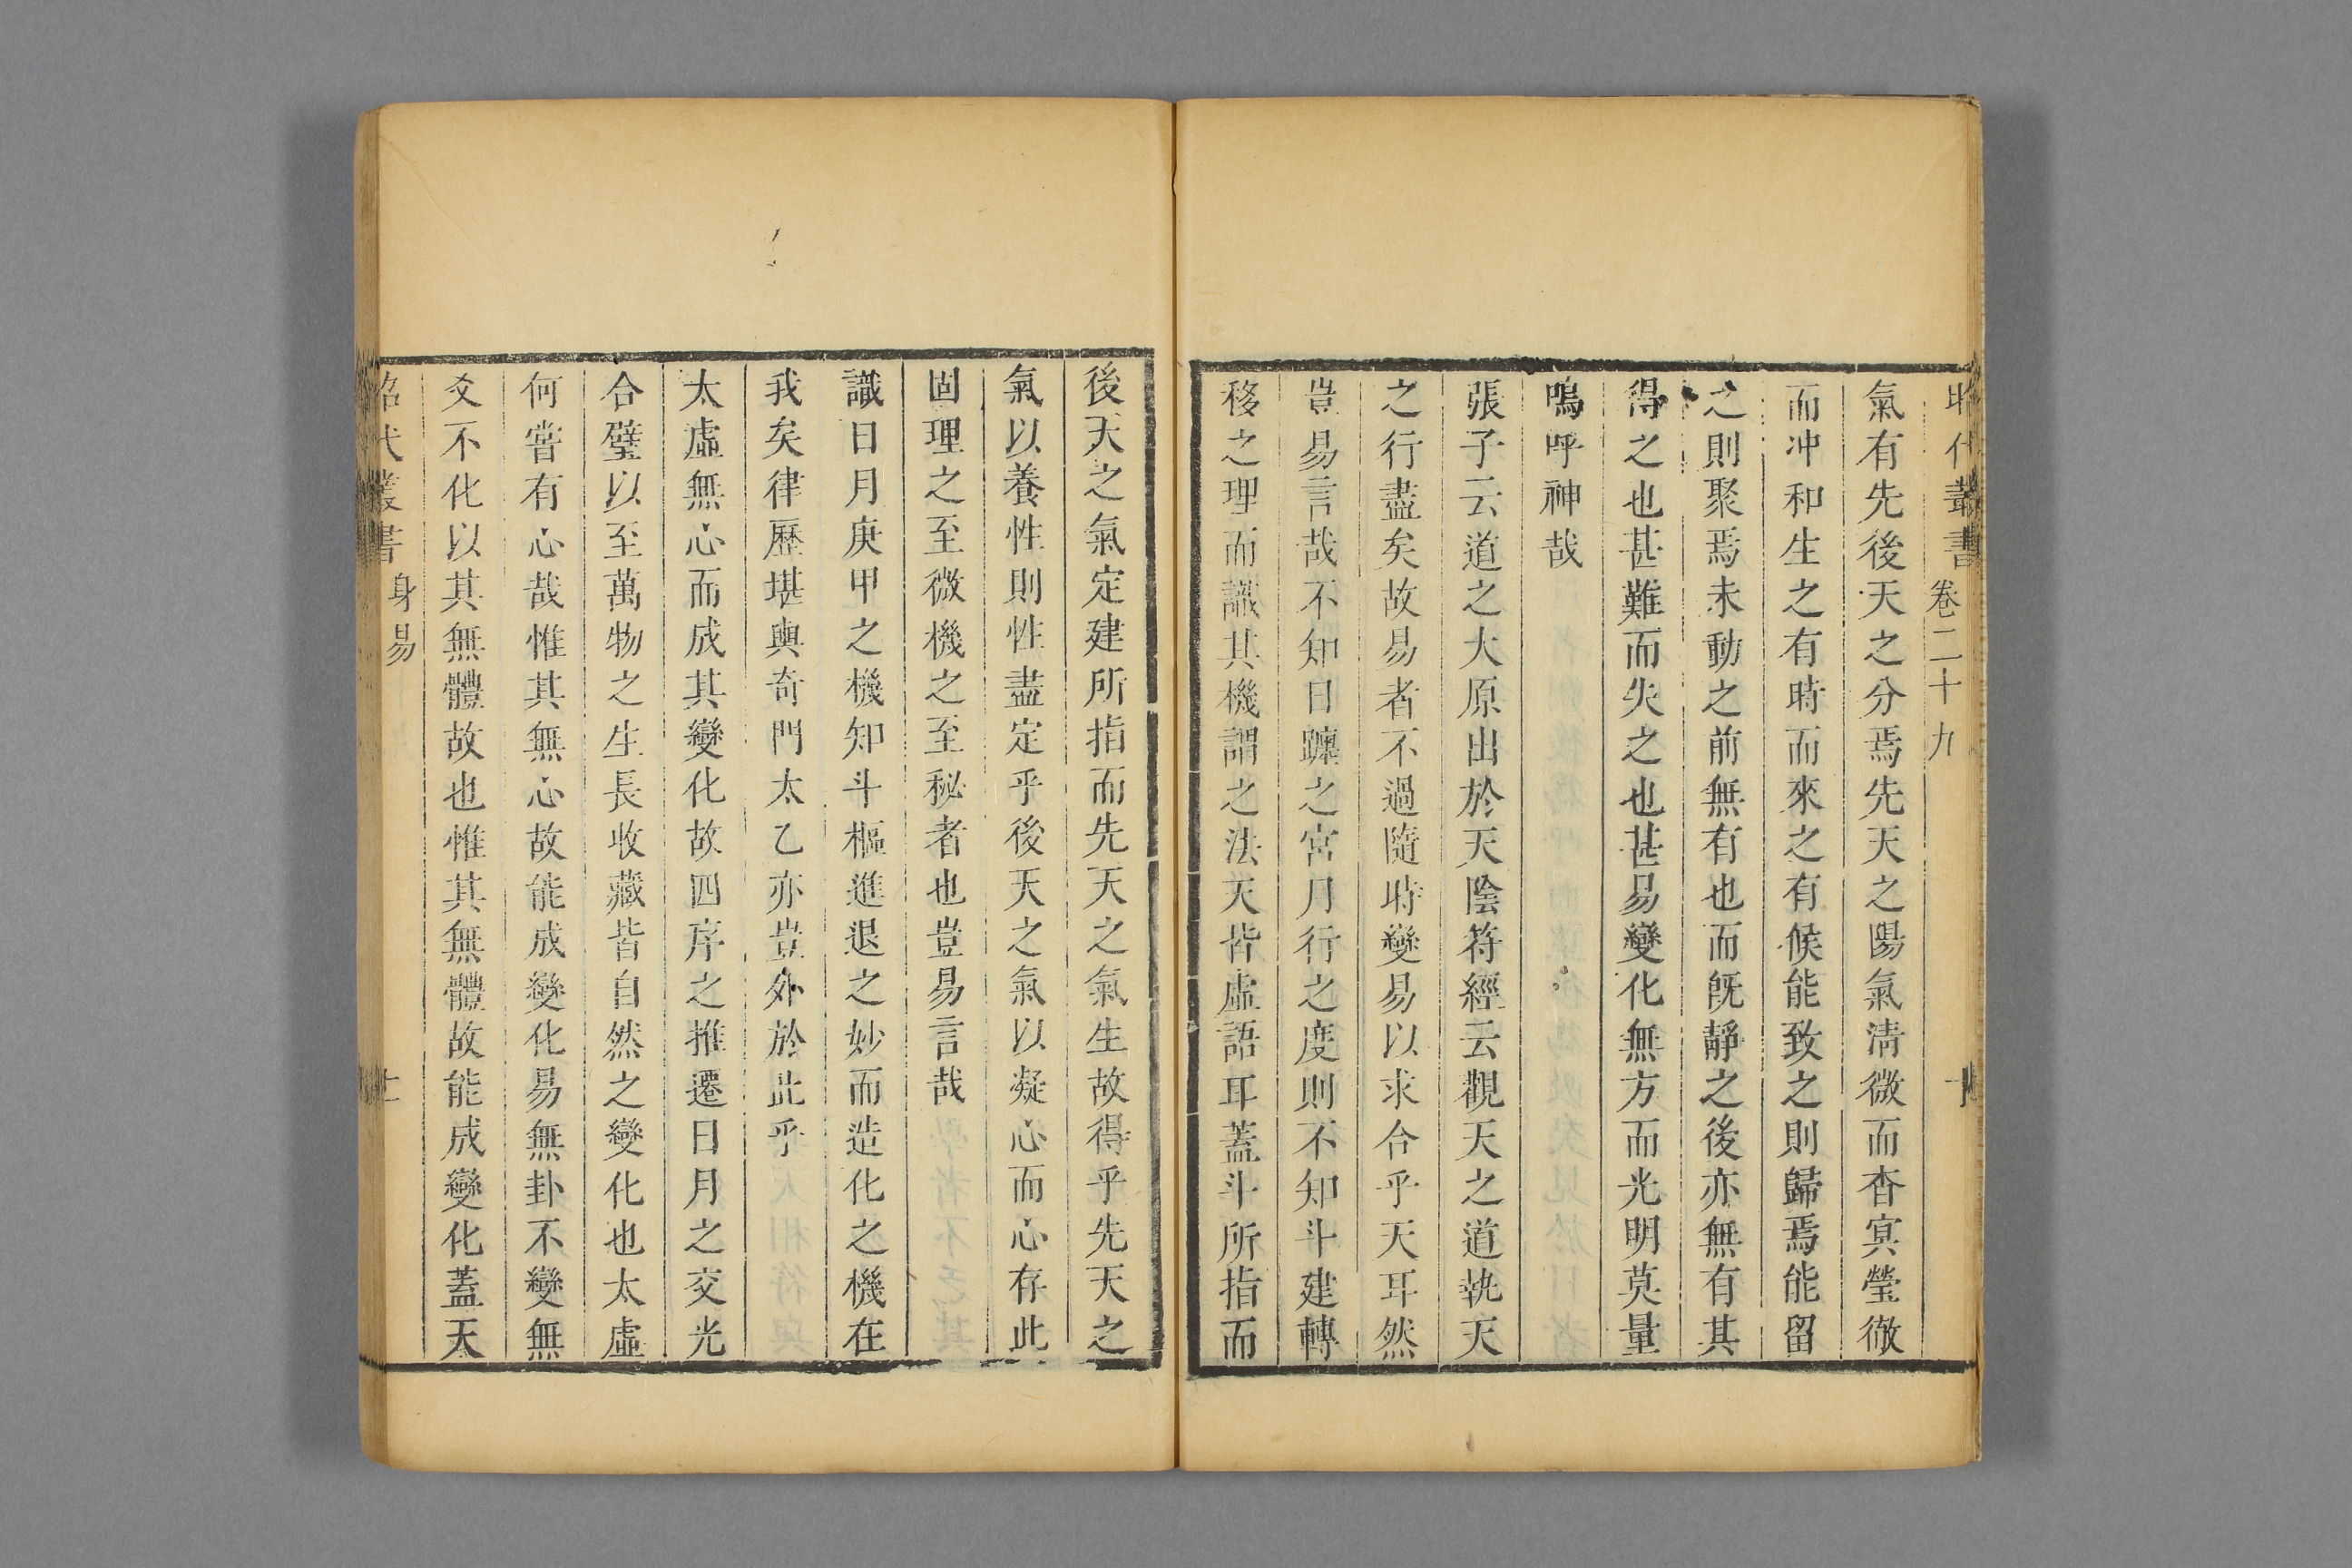 昭代叢書 卷二十九 十
氣有先後天之分焉先天之陽氣清微而杳冥瑩徹
而冲和生之有時而來之有候能致之則歸焉能留
之則聚焉未動之前無有也而旣靜之後亦無有其
得之也甚難而失之也甚易變化無方而光明莫量
嗚呼神哉
張子云道之大原出於天陰符經云觀天之道執天
之行盡矣故易者不過隨時變易以求合乎天耳然
豈易言哉不知日躔之宮月行之度則不知斗建轉
移之理而識其機謂之法天皆虛語耳蓋斗所指而
後天之氣定建所指而先天之氣生故得乎先天之
氣以養性則性盡定乎後天之氣以凝心而心存此
固理之至微機之至秘者也豈易言哉
識日月庚甲之機知斗樞進退之妙而造化之機在
我矣律歷堪輿奇門太乙亦豈外於此乎
太虛無心而成其變化故四序之推遷日月之交光
合璧以至萬物之生長收藏皆自然之變化也太虛
何嘗有心哉惟其無心故能成變化易無卦不變無
爻不化以其無體故也惟其無體故能成變化蓋天
昭代叢書 身易 十一